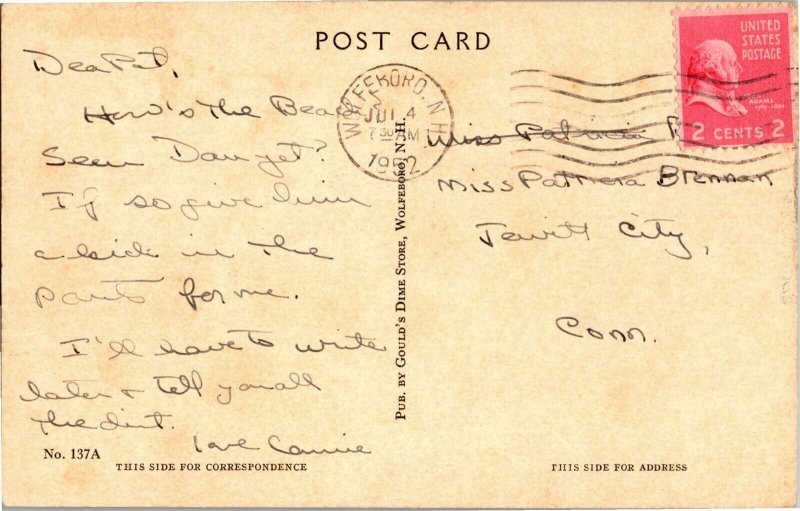 POST CARD
Dear Pat,
How's the Beach
Seen Dan yet?
If so give him
a kick in the
pants for me.
I'll have to write
later & tell you all
the dirt.
Love Connie
No. 137A
THIS SIDE FOR CORRESPONDENCE
PUB. BY GOULD'S DIME STORE, WOLFEBORO, N.H.
WOLFEBORO, N.H.
JUL 4
7 30 PM
1952
UNITED
STATES
POSTAGE
ADAMS
2 CENTS 2
Miss
Miss Patricia Brennan
Jewitt City,
Conn.
THIS SIDE FOR ADDRESS